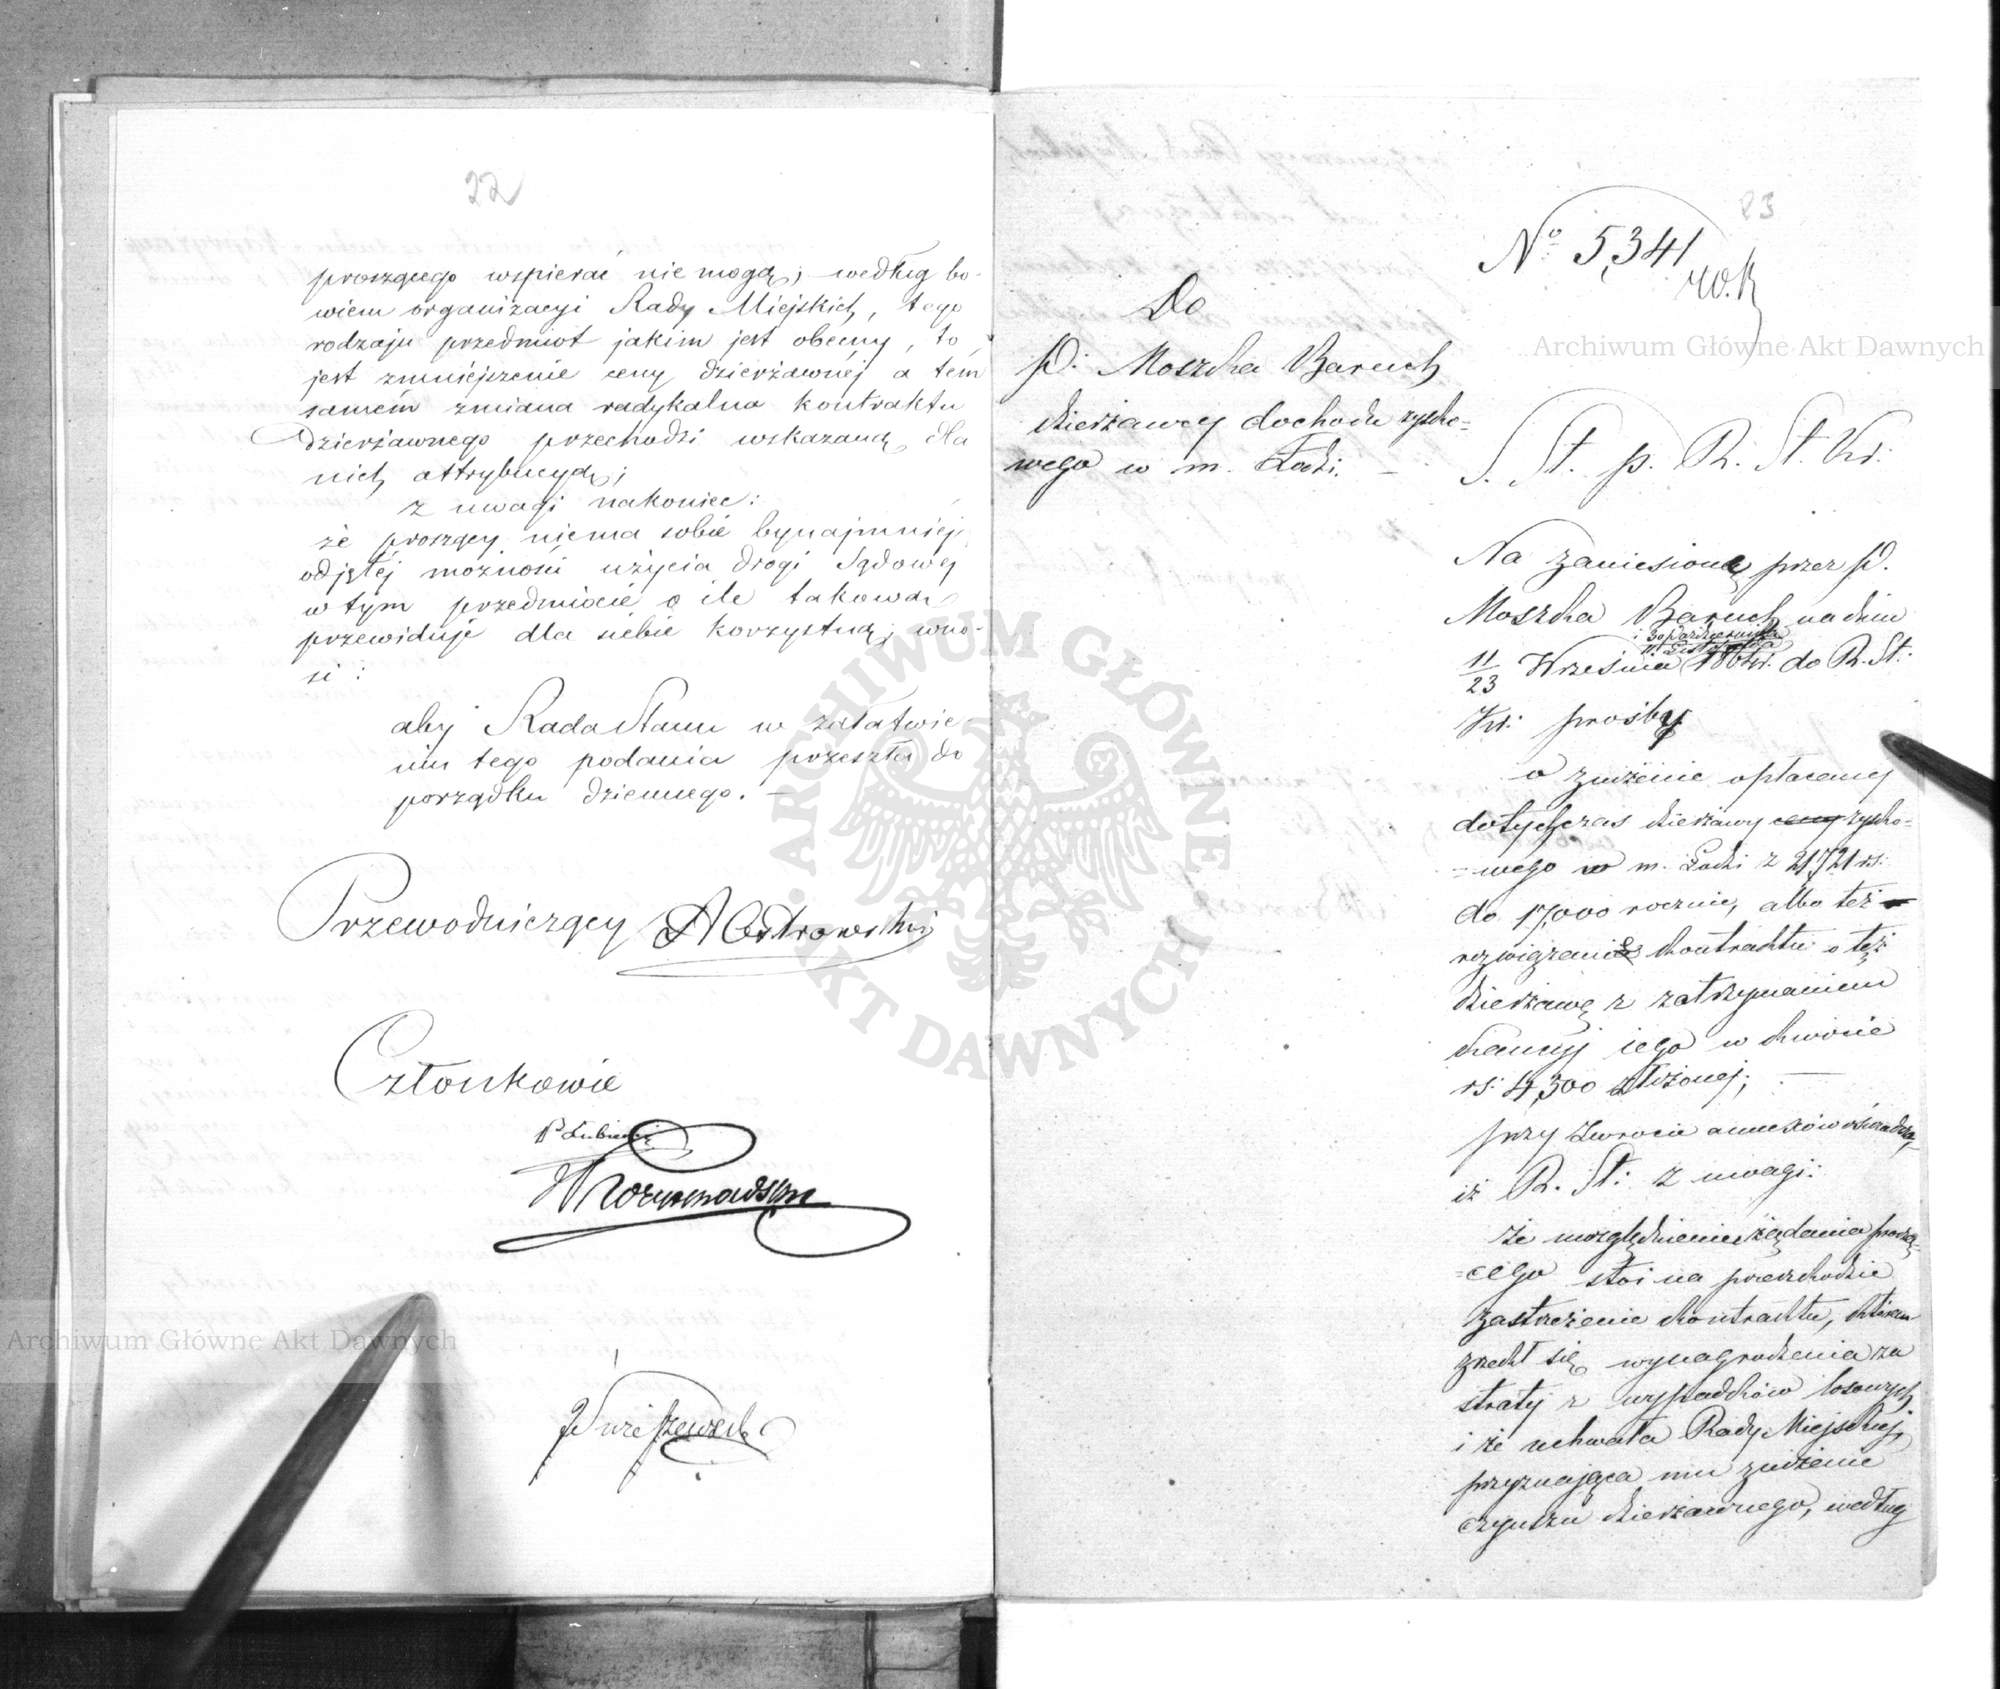 22
proszącego wspierać nie mogą; według bo-
wiem organizacyi Rady Miejskich, tego
rodzaju przedmiot jakim jest obecny, to
jest zmniejszenie ceny dzierżawnej a tem
samem zmiana radykalna kontraktu
dzierżawnego przechodzi wskazaną dla
nich attrybucyą;
z uwagi nakoniec:
że proszący niema sobie bynajmniej
odjętej możności użycia drogi Sądowej
w tym przedmiocie o ile takowa
przewiduje dla siebie korzystną; wno-
si:
aby Rada Stanu w załatwie-
niu tego podania przeszła do
porządku dziennego. —
Przewodniczący A Ostrowski
Członkowie
P Łubieński
23
No 5,341
Do
P. Moszka Baruch
dzierżawcy dochodu
wego w m. Łodzi. —
S. St. p. R. St. Kr:
Na zaniesioną przez P.
Moszka Baruch na dniu
i 30 Października
11 Listopada
11/23 Września do R. St:
Kr: prośbę
o zniżenie opłacanej
dotychczas dzierżawy ceny
wego w m. Łodzi z 21,721 rs:
do 17,000 rocznie, albo też
rozwiązanie kontraktu o też
dzierżawę z zatrzymaniem
kaucyj jego w kwocie
rs: 4,300 złożonej; —
przy zwrocie anneksów oświadcza,
iż R. St: z uwagi:
że uwzględnieniu żądania proszą-
cego stoi na przeszkodzie
zastrzeżenie kontraktu, którem
zrzekł się wynagrodzenia za
straty z wypadków losowych,
i że uchwała Rady Miejskiej,
przyznająca mu zniżenie
czynszu dzierżawnego, według
Archiwum Główne Akt Dawnych
Archiwum Główne Akt Dawnych
ARCHIWUM GŁÓWNE AKT DAWNYCH